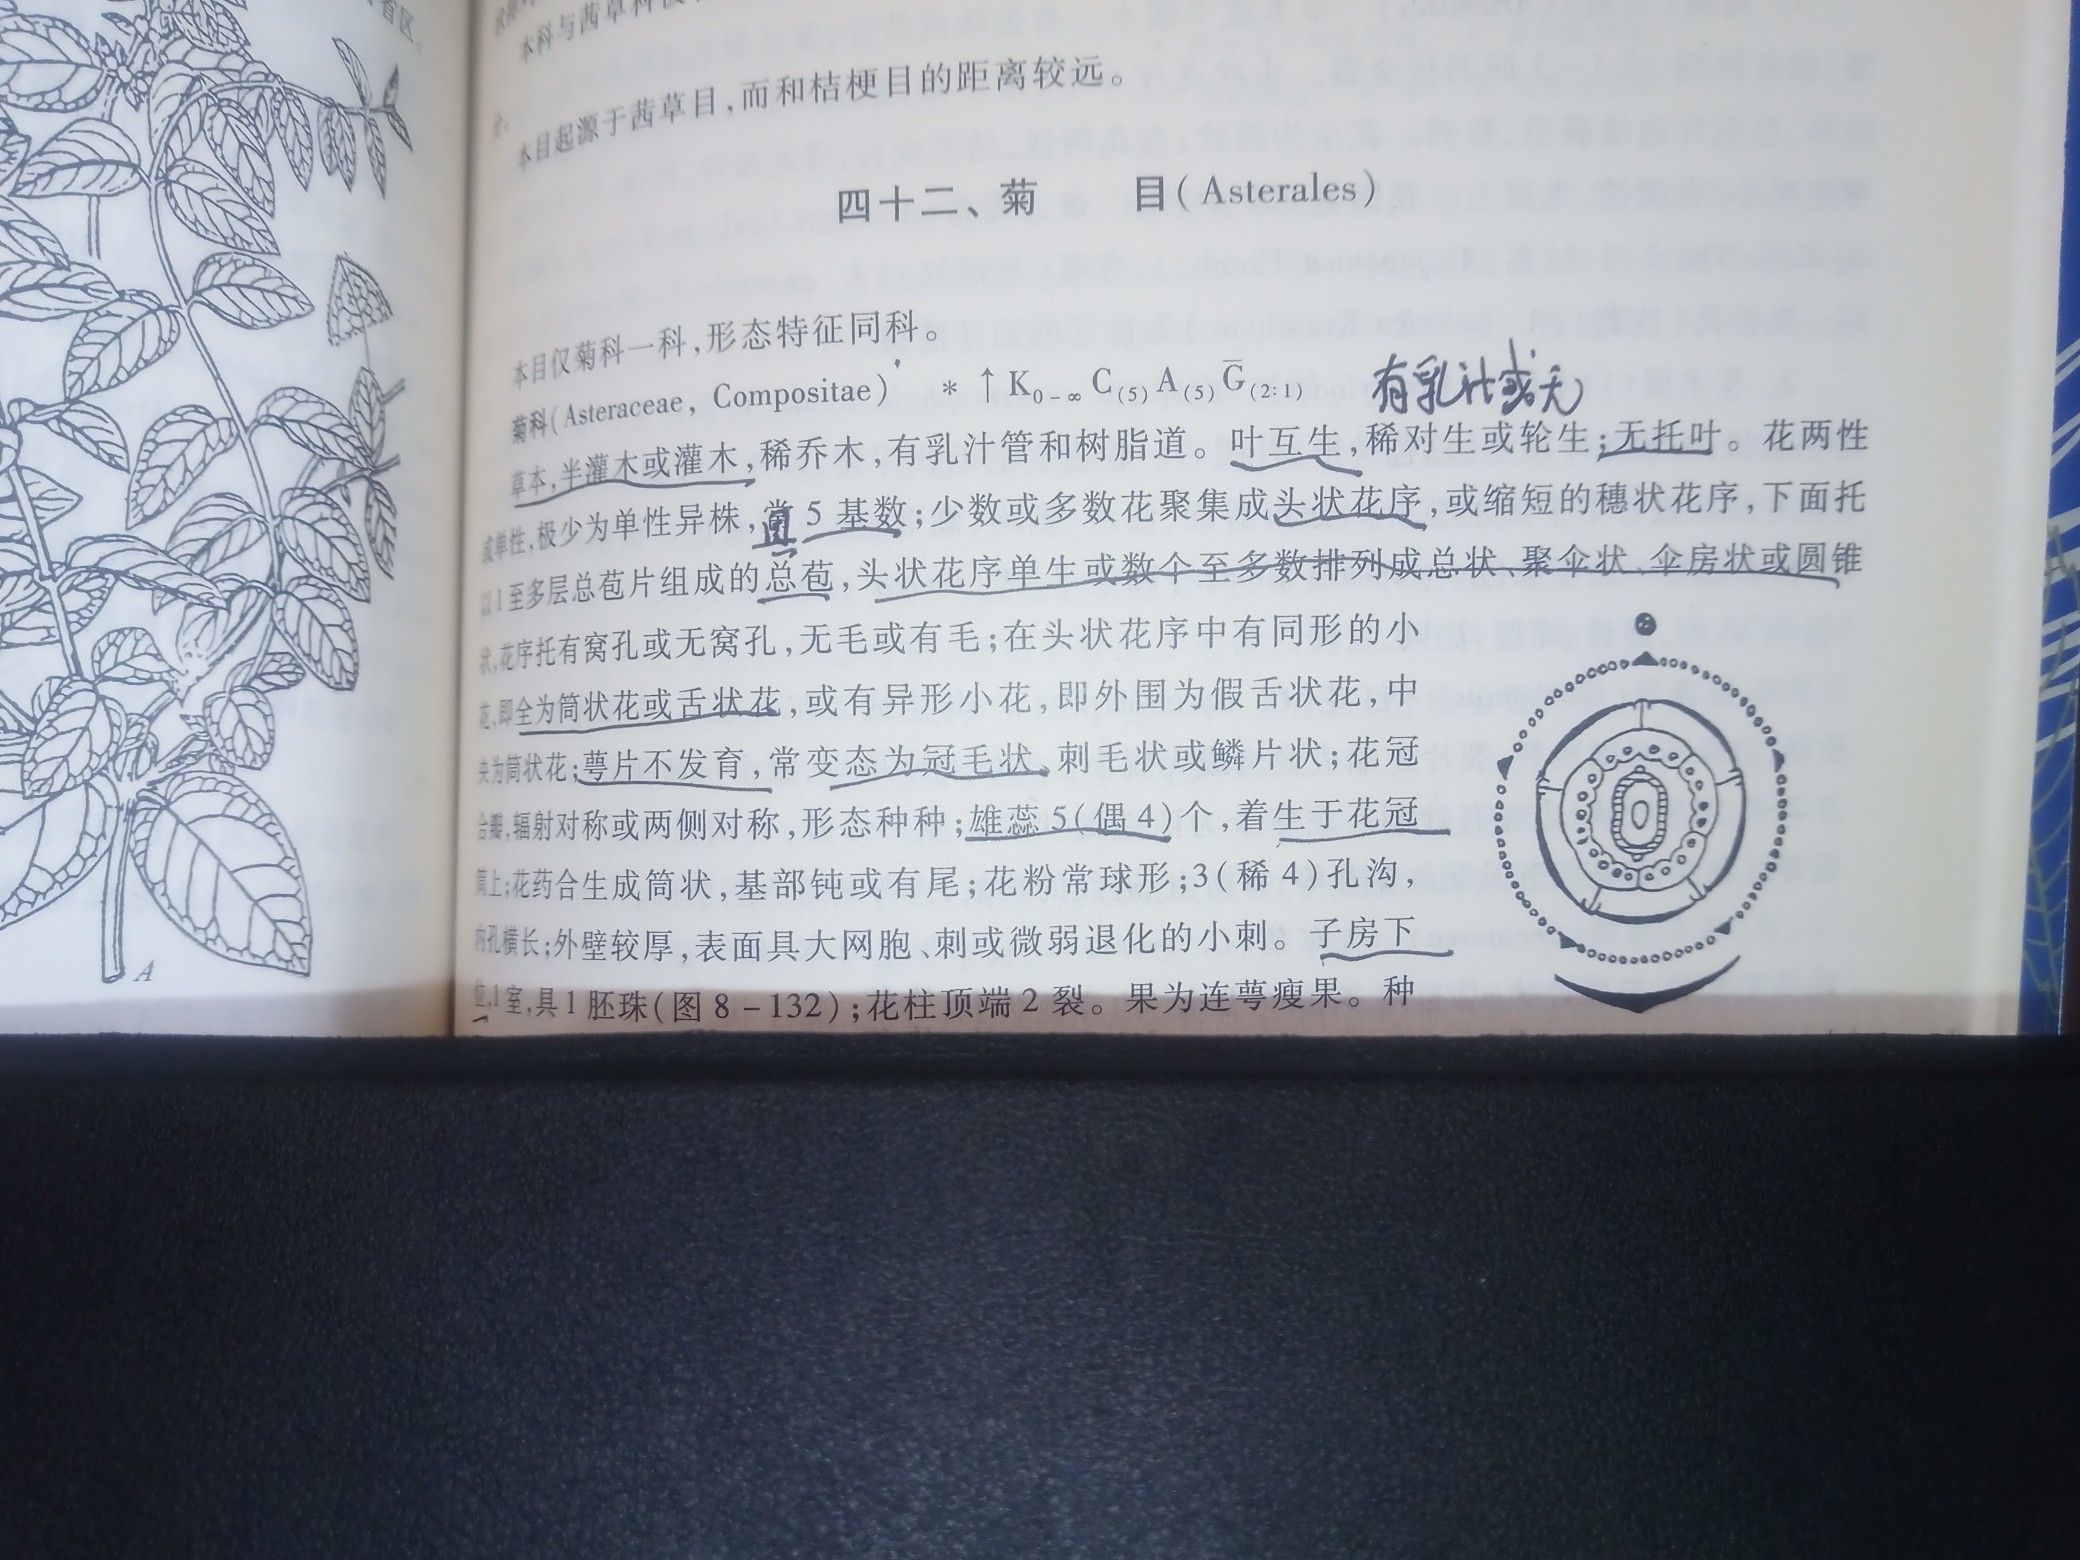 省区。
本科与茜草科
本目起源于茜草目,而和桔梗目的距离较远。
四十二、菊 目(Asterales)
本目仅菊科一科,形态特征同科。
菊科(Asteraceae, Compositae) * ↑ K0-∞ C(5) A(5) G̅(2:1) 有乳汁或无
草本,半灌木或灌木,稀乔木,有乳汁管和树脂道。叶互生,稀对生或轮生;无托叶。花两性
或单性,极少为单性异株,常5基数;少数或多数花聚集成头状花序,或缩短的穗状花序,下面托
以1至多层总苞片组成的总苞,头状花序单生或数个至多数排列成总状、聚伞状、伞房状或圆锥
状,花序托有窝孔或无窝孔,无毛或有毛;在头状花序中有同形的小
花,即全为筒状花或舌状花,或有异形小花,即外围为假舌状花,中
央为筒状花;萼片不发育,常变态为冠毛状、刺毛状或鳞片状;花冠
合瓣,辐射对称或两侧对称,形态种种;雄蕊5(偶4)个,着生于花冠
筒上;花药合生成筒状,基部钝或有尾;花粉常球形;3(稀4)孔沟,
内孔横长;外壁较厚,表面具大网胞、刺或微弱退化的小刺。子房下
位,1室,具1胚珠(图8-132);花柱顶端2裂。果为连萼瘦果。种
A